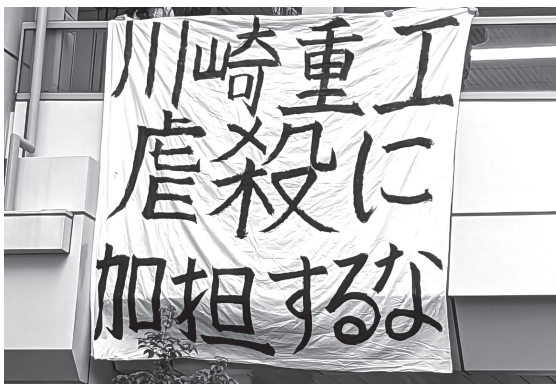 川崎重工
虐殺に
加担するな